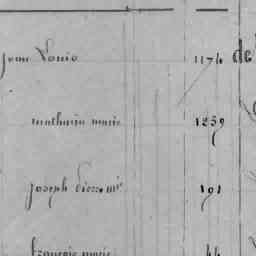 Jean Louis 1174 de
mathurin marie 1259
joseph Pierre mie 191
françois marie 44